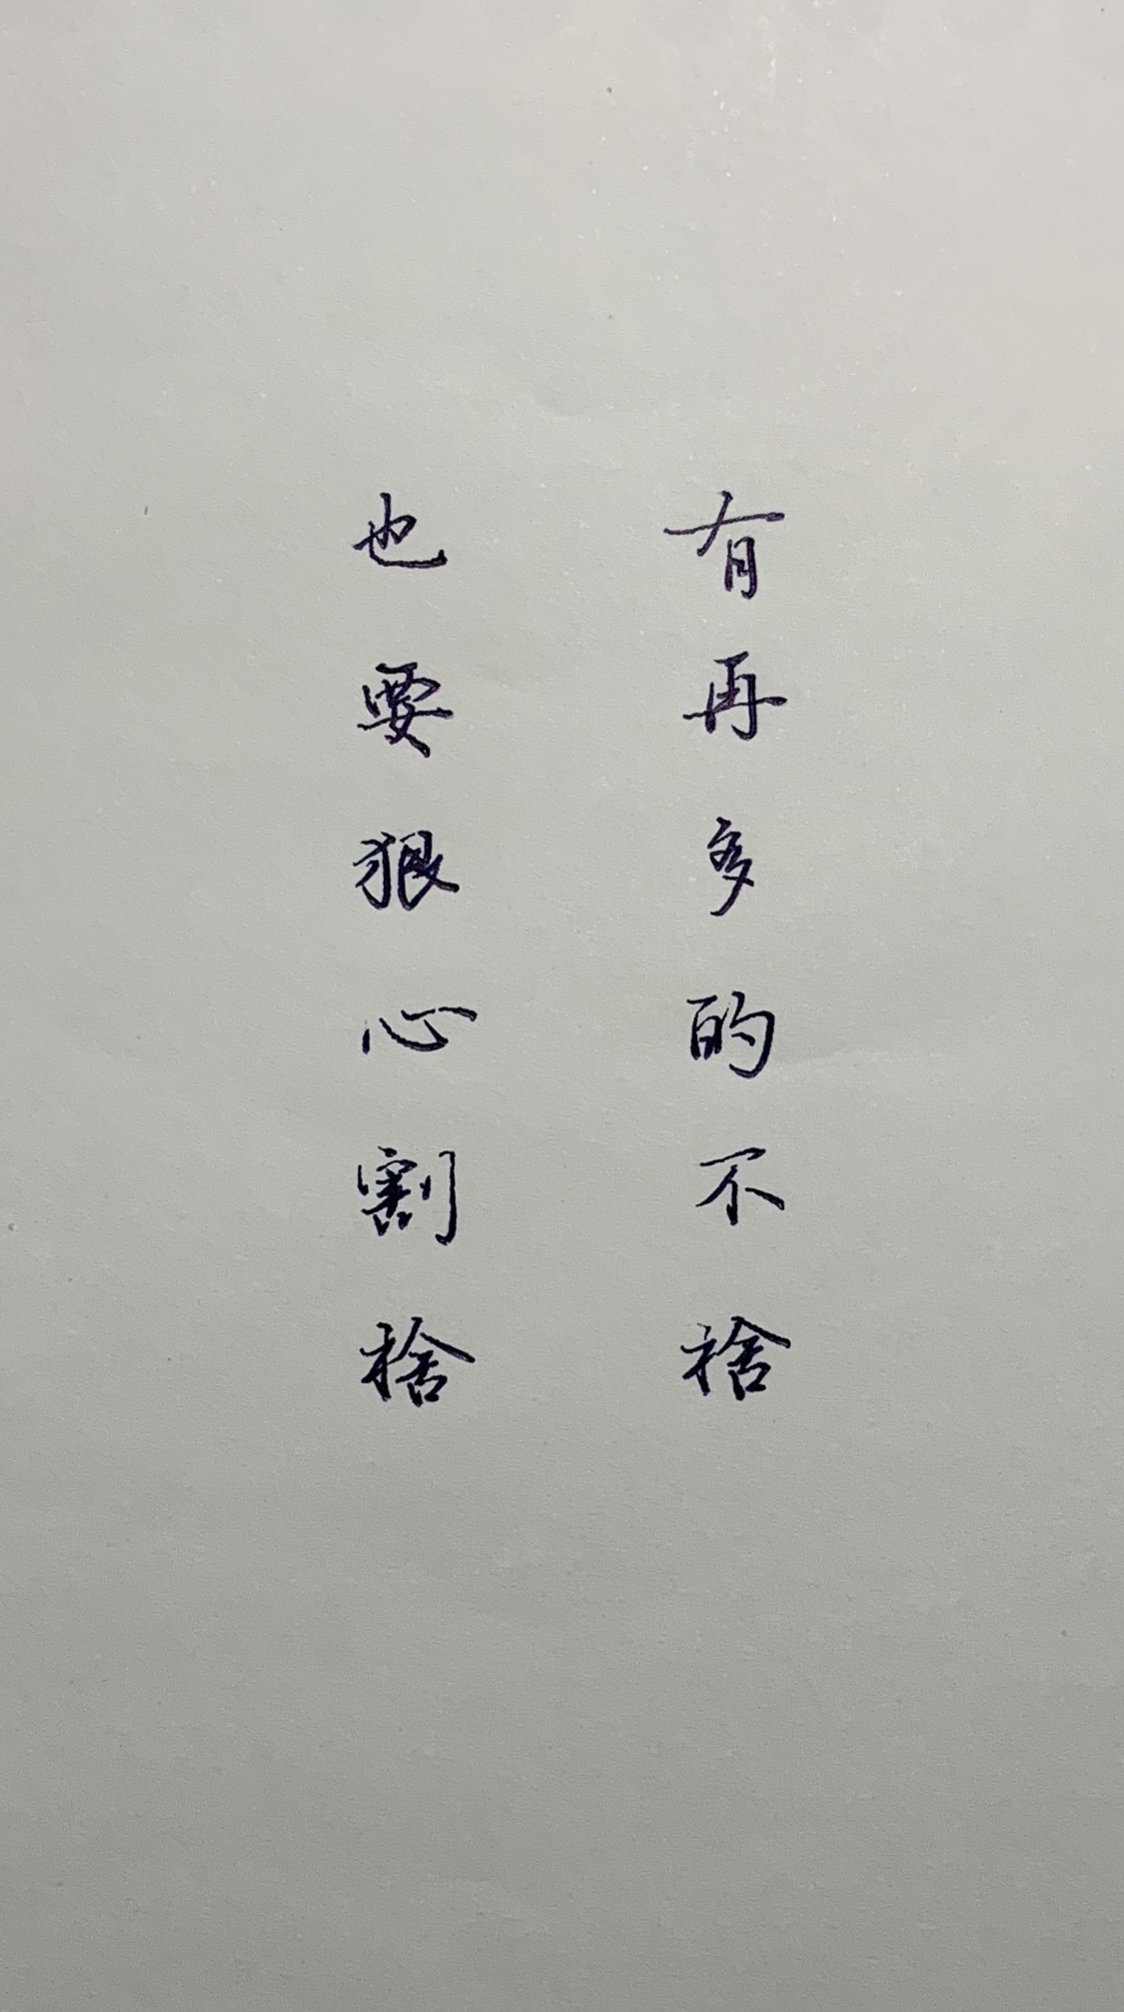 有再多的不捨
也要狠心割捨